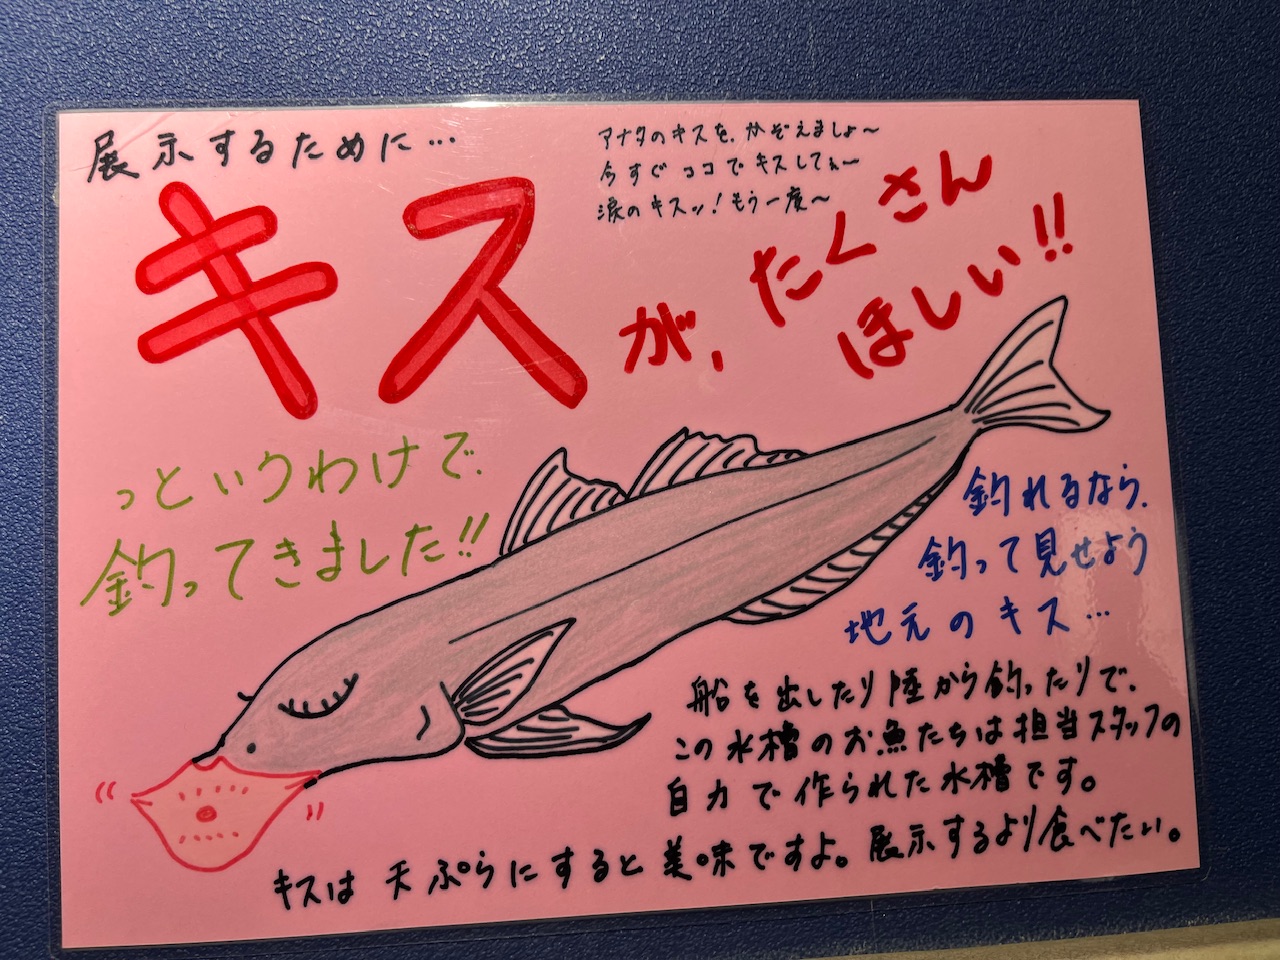 展示するために…
アナタのキスを、かぞえましょ〜
今すぐココでキスしてぇ〜
涙のキスッ！もう一度〜
キスが、たくさん
ほしい!!
っというわけで、
釣ってきました!!
釣れるなら、
釣って見せよう
地元のキス…
船を出したり陸から釣ったりで、
この水槽のお魚たちは担当スタッフの
自力で作られた水槽です。
キスは天ぷらにすると美味ですよ。展示するより食べたい。